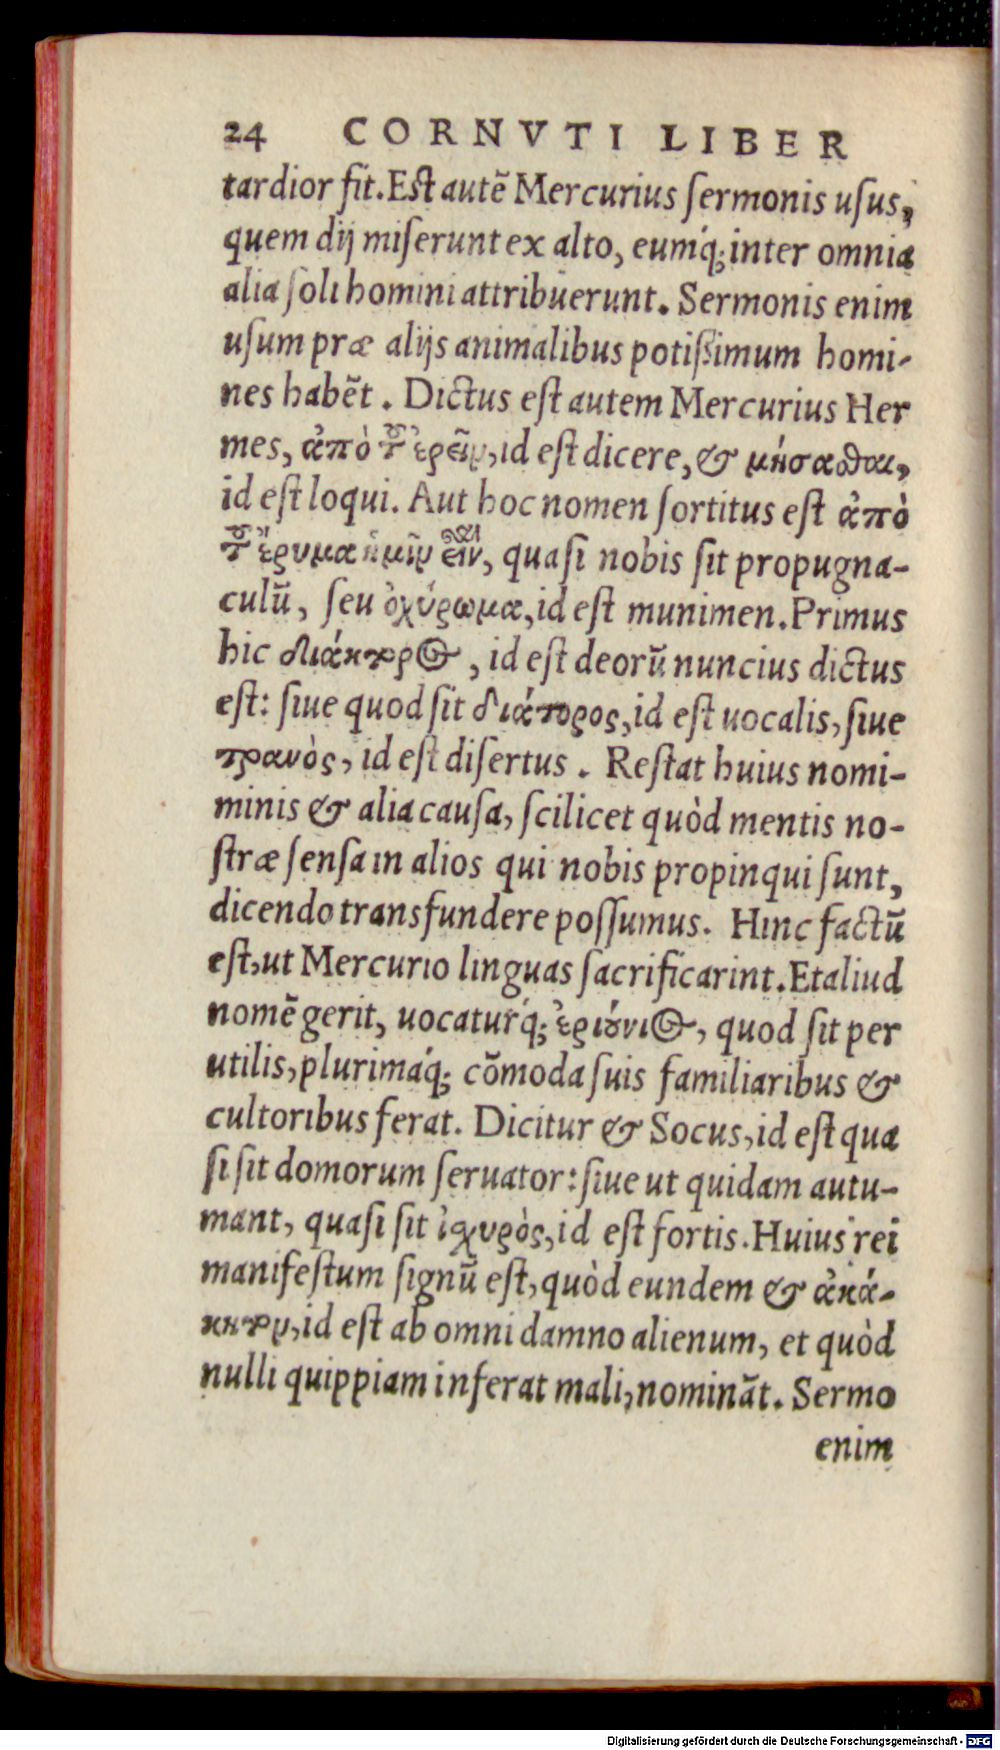 24 CORNVTI LIBER
tardior fit. Est autẽ Mercurius ſermonis uſus,
quem dij miſerunt ex alto, eumq́; inter omnia
alia ſoli homini attribuerunt. Sermonis enim
uſum præ alijs animalibus potiſsimum homi-
nes habẽt. Dictus eſt autem Mercurius Her
mes, ἀπὸ τοῦ ἐρεῖν, id eſt dicere, & μήσασθαι,
id eſt loqui. Aut hoc nomen ſortitus eſt ἀπὸ
τοῦ ἔρυμα ἡμῖν εἶναι, quaſi nobis ſit propugna-
culũ, ſeu ὀχύρωμα, id eſt munimen. Primus
hic διάκτορος, id eſt deorũ nuncius dictus
eſt: ſiue quod ſit διάτορος, id eſt uocalis, ſiue
τρανὸς, id eſt diſertus. Reſtat huius nomi-
minis & alia cauſa, ſcilicet quòd mentis no-
ſtræ ſenſa in alios qui nobis propinqui ſunt,
dicendo transfundere poſſumus. Hinc factũ
eſt, ut Mercurio linguas ſacrificarint. Et aliud
nomẽ gerit, uocaturq́; ἐριούνιος, quod ſit per
utilis, plurimaq́; cõmoda ſuis familiaribus &
cultoribus ferat. Dicitur & Socus, id eſt qua
ſi ſit domorum ſeruator: ſiue ut quidam autu-
mant, quaſi ſit ἰχυρὸς, id eſt fortis. Huius rei
manifeſtum ſignũ eſt, quòd eundem & ἀκά-
κητον, id eſt ab omni damno alienum, et quòd
nulli quippiam inferat mali, nominãt. Sermo
enim
Digitalisierung gefördert durch die Deutsche Forschungsgemeinschaft - DFG